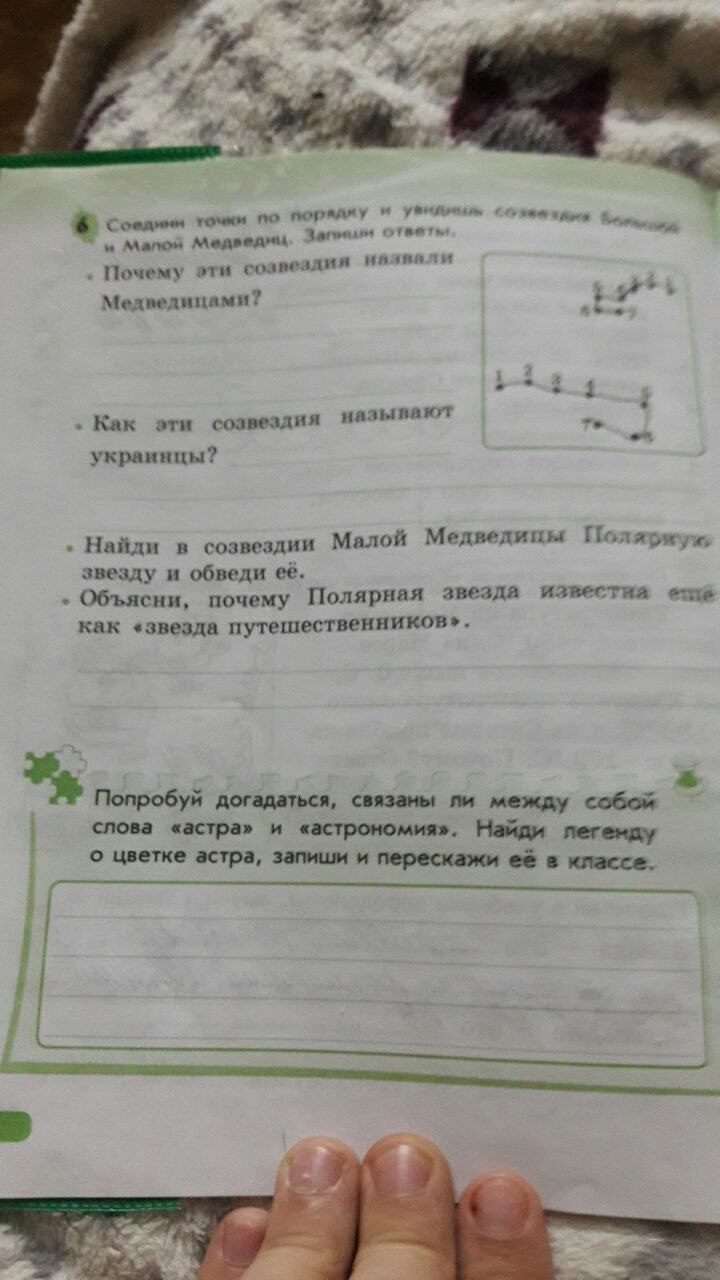 6 Соедини точки по порядку и увидишь созвездия Большой
и Малой Медведиц. Запиши ответы.
• Почему эти созвездия назвали
Медведицами?
5 4 3 2 1
6 7
1 2 3 4 5
7 6
• Как эти созвездия называют
украинцы?
• Найди в созвездии Малой Медведицы Полярную
звезду и обведи её.
• Объясни, почему Полярная звезда известна ещё
как «звезда путешественников».
Попробуй догадаться, связаны ли между собой
слова «астра» и «астрономия». Найди легенду
о цветке астра, запиши и перескажи её в классе.